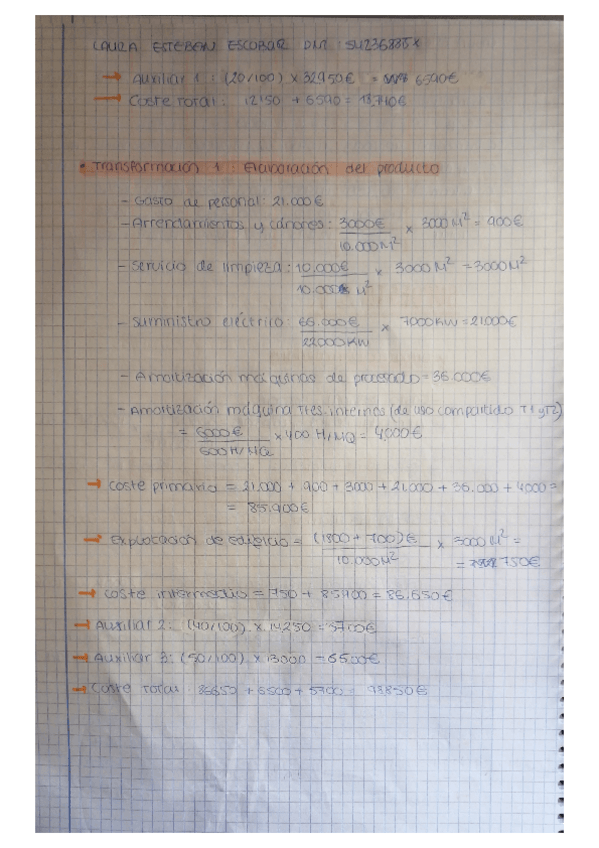 LAURA ESTEBAN ESCOBAR DNI:
→ Auxiliar 1 : (20/100) x 32950€ = 6590€
→ Coste Total: 12150 + 6590 = 18.740€
• Transformación 1 : Elaboración del producto
- Gasto de personal: 21.000€
- Arrendamientos y cánones: 3000€ / 10.000 M² x 3000 M² = 900€
- Servicio de limpieza: 10.000€ / 10.000 M² x 3000 M² = 3000 M²
- Suministro eléctrico: 66.000€ / 22000 KW x 7000 KW = 21000€
- Amortización máquinas de procesado = 36.000€
- Amortización máquina Tres. internos (de uso compartido T1 y T2)
= 6000€ / 600 H/MQ x 400 H/MQ = 4000€
→ Coste primario = 21.000 + 900 + 3000 + 21.000 + 36.000 + 4000 =
= 85.900€
→ Explotación de edificio = (1800 + 700)€ / 10.000 M² x 3000 M² =
= 750€
→ Coste intermedio = 750 + 85.900 = 86.650€
→ Auxiliar 2: (40/100) x 14250 = 5700€
→ Auxiliar 3: (50/100) x 13000 = 6500€
→ Coste Total: 86650 + 6500 + 5700 = 98850€